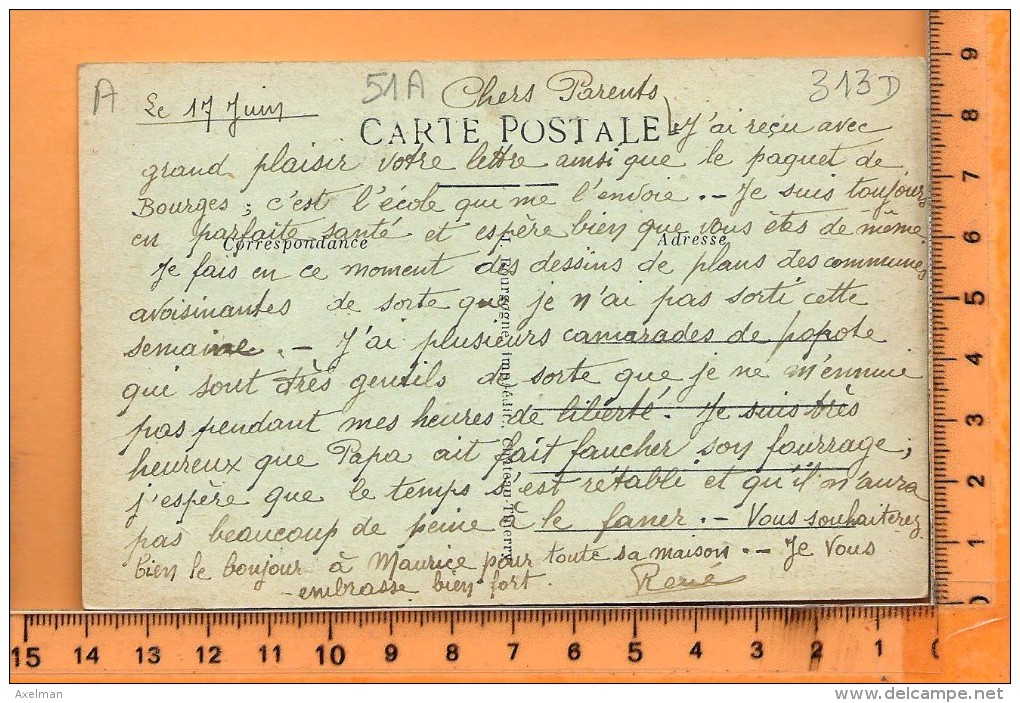 A
51A
313D
Le 17 Juin
Chers Parents,
CARTE POSTALE
J'ai reçu avec
grand plaisir votre lettre ainsi que le paquet de
Bourges ; c'est l'école qui me l'envoie .- Je suis toujours
en parfaite santé et espère bien que vous êtes de même
Correspondance
Adresse
Je fais en ce moment des dessins de plans des communes
avoisinantes de sorte que je n'ai pas sorti cette
semaine .- J'ai plusieurs camarades de popote
qui sont très gentils de sorte que je ne m'ennuie
pas pendant mes heures de liberté. Je suis très
heureux que Papa ait fait faucher son fourrage ;
j'espère que le temps s'est rétabli et qu'il n'aura
pas beaucoup de peine à le faner .- Vous souhaiterez
bien le bonjour à Maurice pour toute sa maison .- Je vous
embrasse bien fort.
René
Bourgogne, imp.-édit. Château-Thierry
9
8
7
6
5
4
3
2
1
0
15 14 13 12 11 10 9 8 7 6 5 4 3 2 1
Axelman
delcampe.net